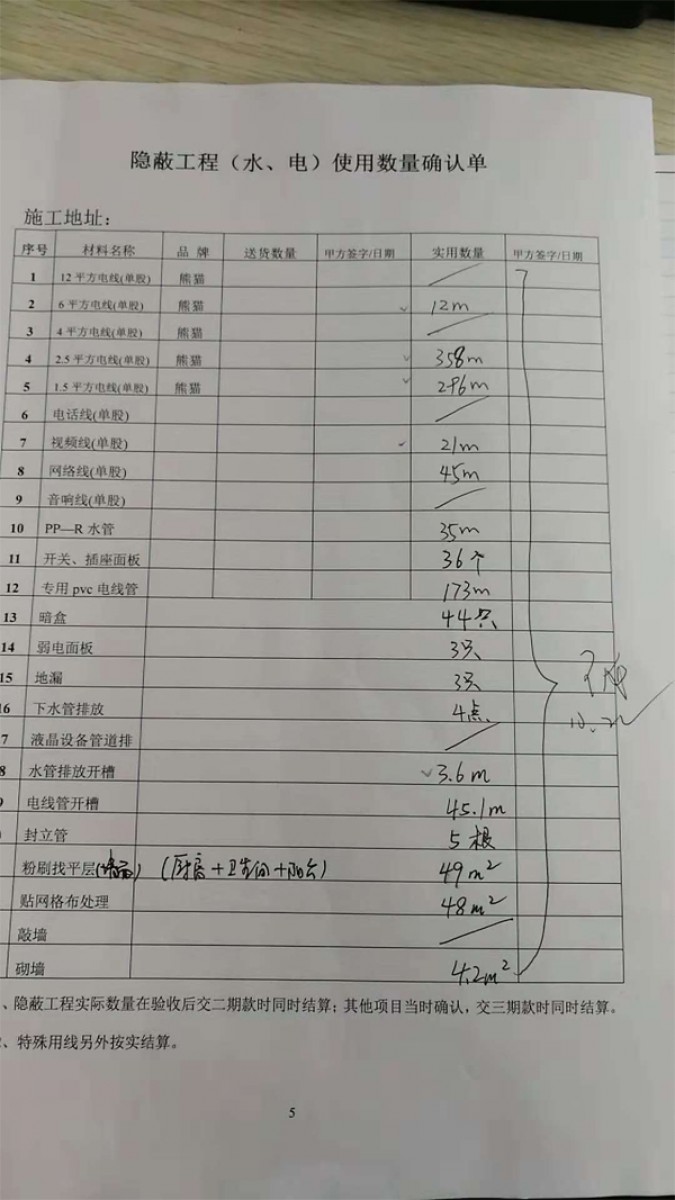 隐蔽工程（水、电）使用数量确认单
施工地址：
序号 材料名称 品 牌 送货数量 甲方签字/日期 实用数量 甲方签字/日期
1 12平方电线(单股) 熊猫
2 6平方电线(单股) 熊猫 12m
3 4平方电线(单股) 熊猫
4 2.5平方电线(单股) 熊猫 358m
5 1.5平方电线(单股) 熊猫 296m
6 电话线(单股)
7 视频线(单股) 21m
8 网络线(单股) 45m
9 音响线(单股)
10 PP—R 水管 35m
11 开关、插座面板 36个
12 专用 pvc 电线管 173m
13 暗盒 44只
14 弱电面板 3只
15 地漏 3只
16 下水管排放 4点
7 液晶设备管道排
8 水管排放开槽 3.6m
电线管开槽 45.1m
封立管 5根
粉刷找平层(墙面) (厨房+卫生间+阳台) 49m²
贴网格布处理 48m²
敲墙
砌墙 4.2m²
、隐蔽工程实际数量在验收后交二期款时同时结算；其他项目当时确认，交三期款时同时结算。
、特殊用线另外按实结算。
5